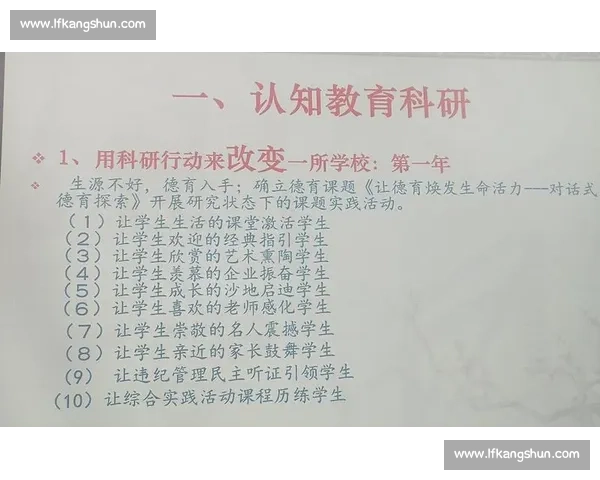 www.lfkangshun.com
一、认知教育科研
❖ 1、用科研行动来改变一所学校：第一年
❖ 生源不好，德育入手；确立德育课题《让德育焕发生命活力——对话式
德育探索》开展研究状态下的课题实践活动。
（1）让学生生活的课堂激活学生
（2）让学生欢迎的经典指引学生
（3）让学生欣赏的艺术熏陶学生
（4）让学生羡慕的企业振奋学生
（5）让学生成长的沙地启迪学生
（6）让学生喜欢的老师感化学生
（7）让学生崇敬的名人震撼学生
（8）让学生亲近的家长鼓舞学生
（9） 让违纪管理民主听证引领学生
（10）让综合实践活动课程历练学生
www.lfkangshun.com